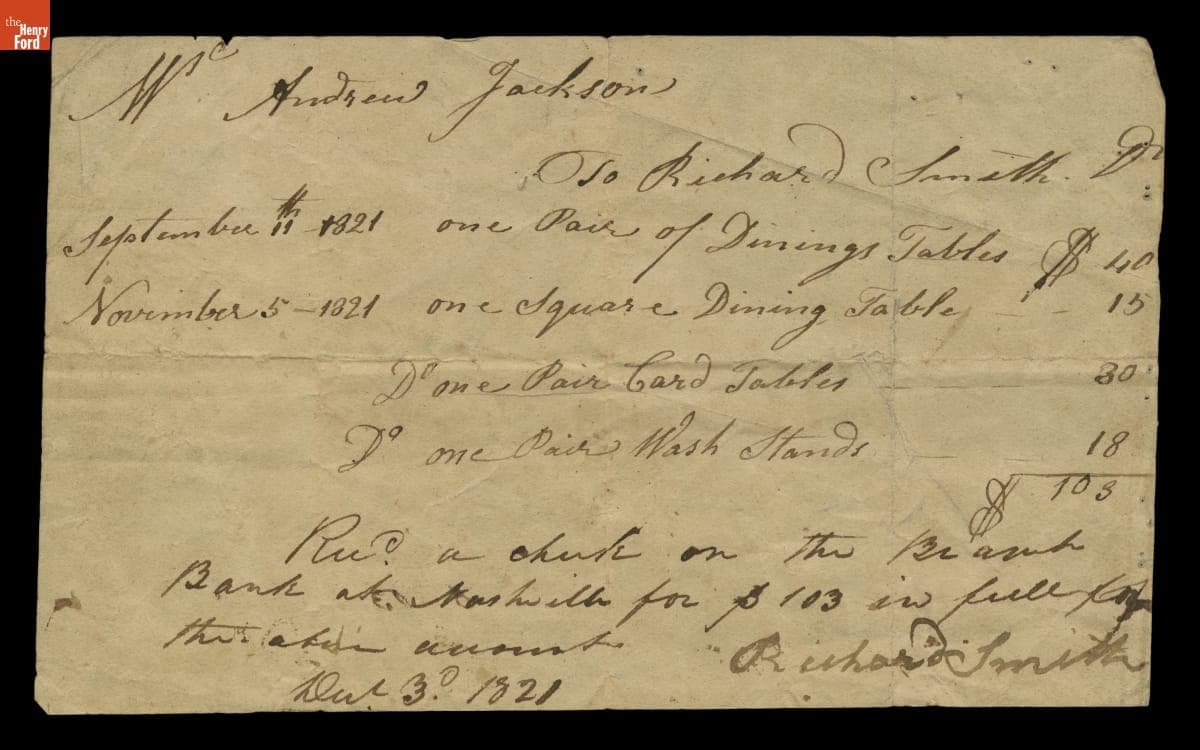 the
Henry
Ford
Mr Andrew Jackson
To Richard Smith. Dr
September 11th 1821 one Pair of Dinings Tables $ 40
November 5 - 1821 one Square Dining Table - - 15
Do one Pair Card Tables 30
Do one Pair Wash Stands 18
$ 103
Recd. a check on the Branch
Bank at Nashville for $ 103 in full for
the above amount
Richard Smith
3d 1821